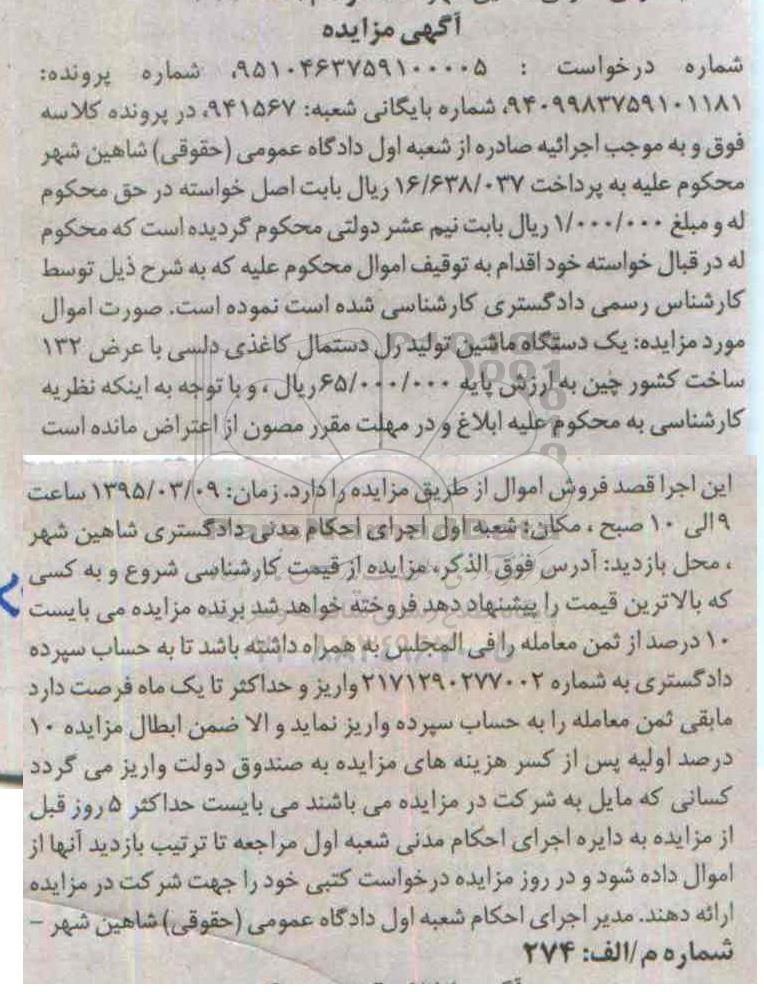 آگهی مزایده
شماره درخواست : ۹۵۱۰۴۶۳۷۵۹۱۰۰۰۰۵، شماره پرونده:
۹۴۰۹۹۸۳۷۵۹۱۰۱۱۸۱، شماره بایگانی شعبه: ۹۴۱۵۶۷، در پرونده کلاسه
فوق و به موجب اجرائیه صادره از شعبه اول دادگاه عمومی (حقوقی) شاهین شهر
محکوم علیه به پرداخت ۱۶/۶۳۸/۰۳۷ ریال بابت اصل خواسته در حق محکوم
له و مبلغ ۱/۰۰۰/۰۰۰ ریال بابت نیم عشر دولتی محکوم گردیده است که محکوم
له در قبال خواسته خود اقدام به توقیف اموال محکوم علیه که به شرح ذیل توسط
کارشناس رسمی دادگستری کارشناسی شده است نموده است. صورت اموال
مورد مزایده: یک دستگاه ماشین تولید رل دستمال کاغذی دلسی با عرض ۱۳۲
ساخت کشور چین به ارزش پایه ۶۵/۰۰۰/۰۰۰ ریال ، و با توجه به اینکه نظریه
کارشناسی به محکوم علیه ابلاغ و در مهلت مقرر مصون از اعتراض مانده است
این اجرا قصد فروش اموال از طریق مزایده را دارد. زمان: ۱۳۹۵/۰۳/۰۹ ساعت
۹ الی ۱۰ صبح ، مکان: شعبه اول اجرای احکام مدنی دادگستری شاهین شهر
، محل بازدید: آدرس فوق الذکر، مزایده از قیمت کارشناسی شروع و به کسی
که بالاترین قیمت را پیشنهاد دهد فروخته خواهد شد برنده مزایده می بایست
۱۰ درصد از ثمن معامله را فی المجلس به همراه داشته باشد تا به حساب سپرده
دادگستری به شماره ۲۱۷۱۲۹۰۲۷۷۰۰۲ واریز و حداکثر تا یک ماه فرصت دارد
مابقی ثمن معامله را به حساب سپرده واریز نماید و الا ضمن ابطال مزایده ۱۰
درصد اولیه پس از کسر هزینه های مزایده به صندوق دولت واریز می گردد
کسانی که مایل به شرکت در مزایده می باشند می بایست حداکثر ۵ روز قبل
از مزایده به دایره اجرای احکام مدنی شعبه اول مراجعه تا ترتیب بازدید آنها از
اموال داده شود و در روز مزایده درخواست کتبی خود را جهت شرکت در مزایده
ارائه دهند. مدیر اجرای احکام شعبه اول دادگاه عمومی (حقوقی) شاهین شهر –
شماره م/الف: ۲۷۴